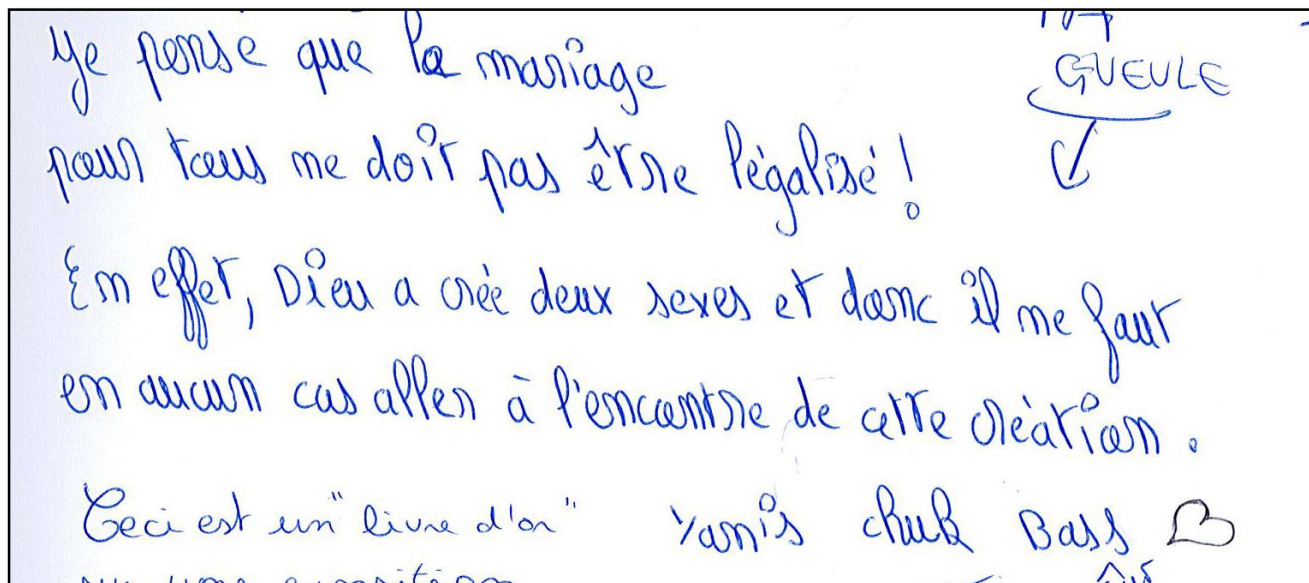 Je pense que le mariage
GUEULE
pour tous ne doit pas être légalisé !
En effet, Dieu a crée deux sexes et donc il ne faut
en aucun cas aller à l'encontre de cette création.
Ceci est un "livre d'or"
Yanis chuk Bass
sur une exposition